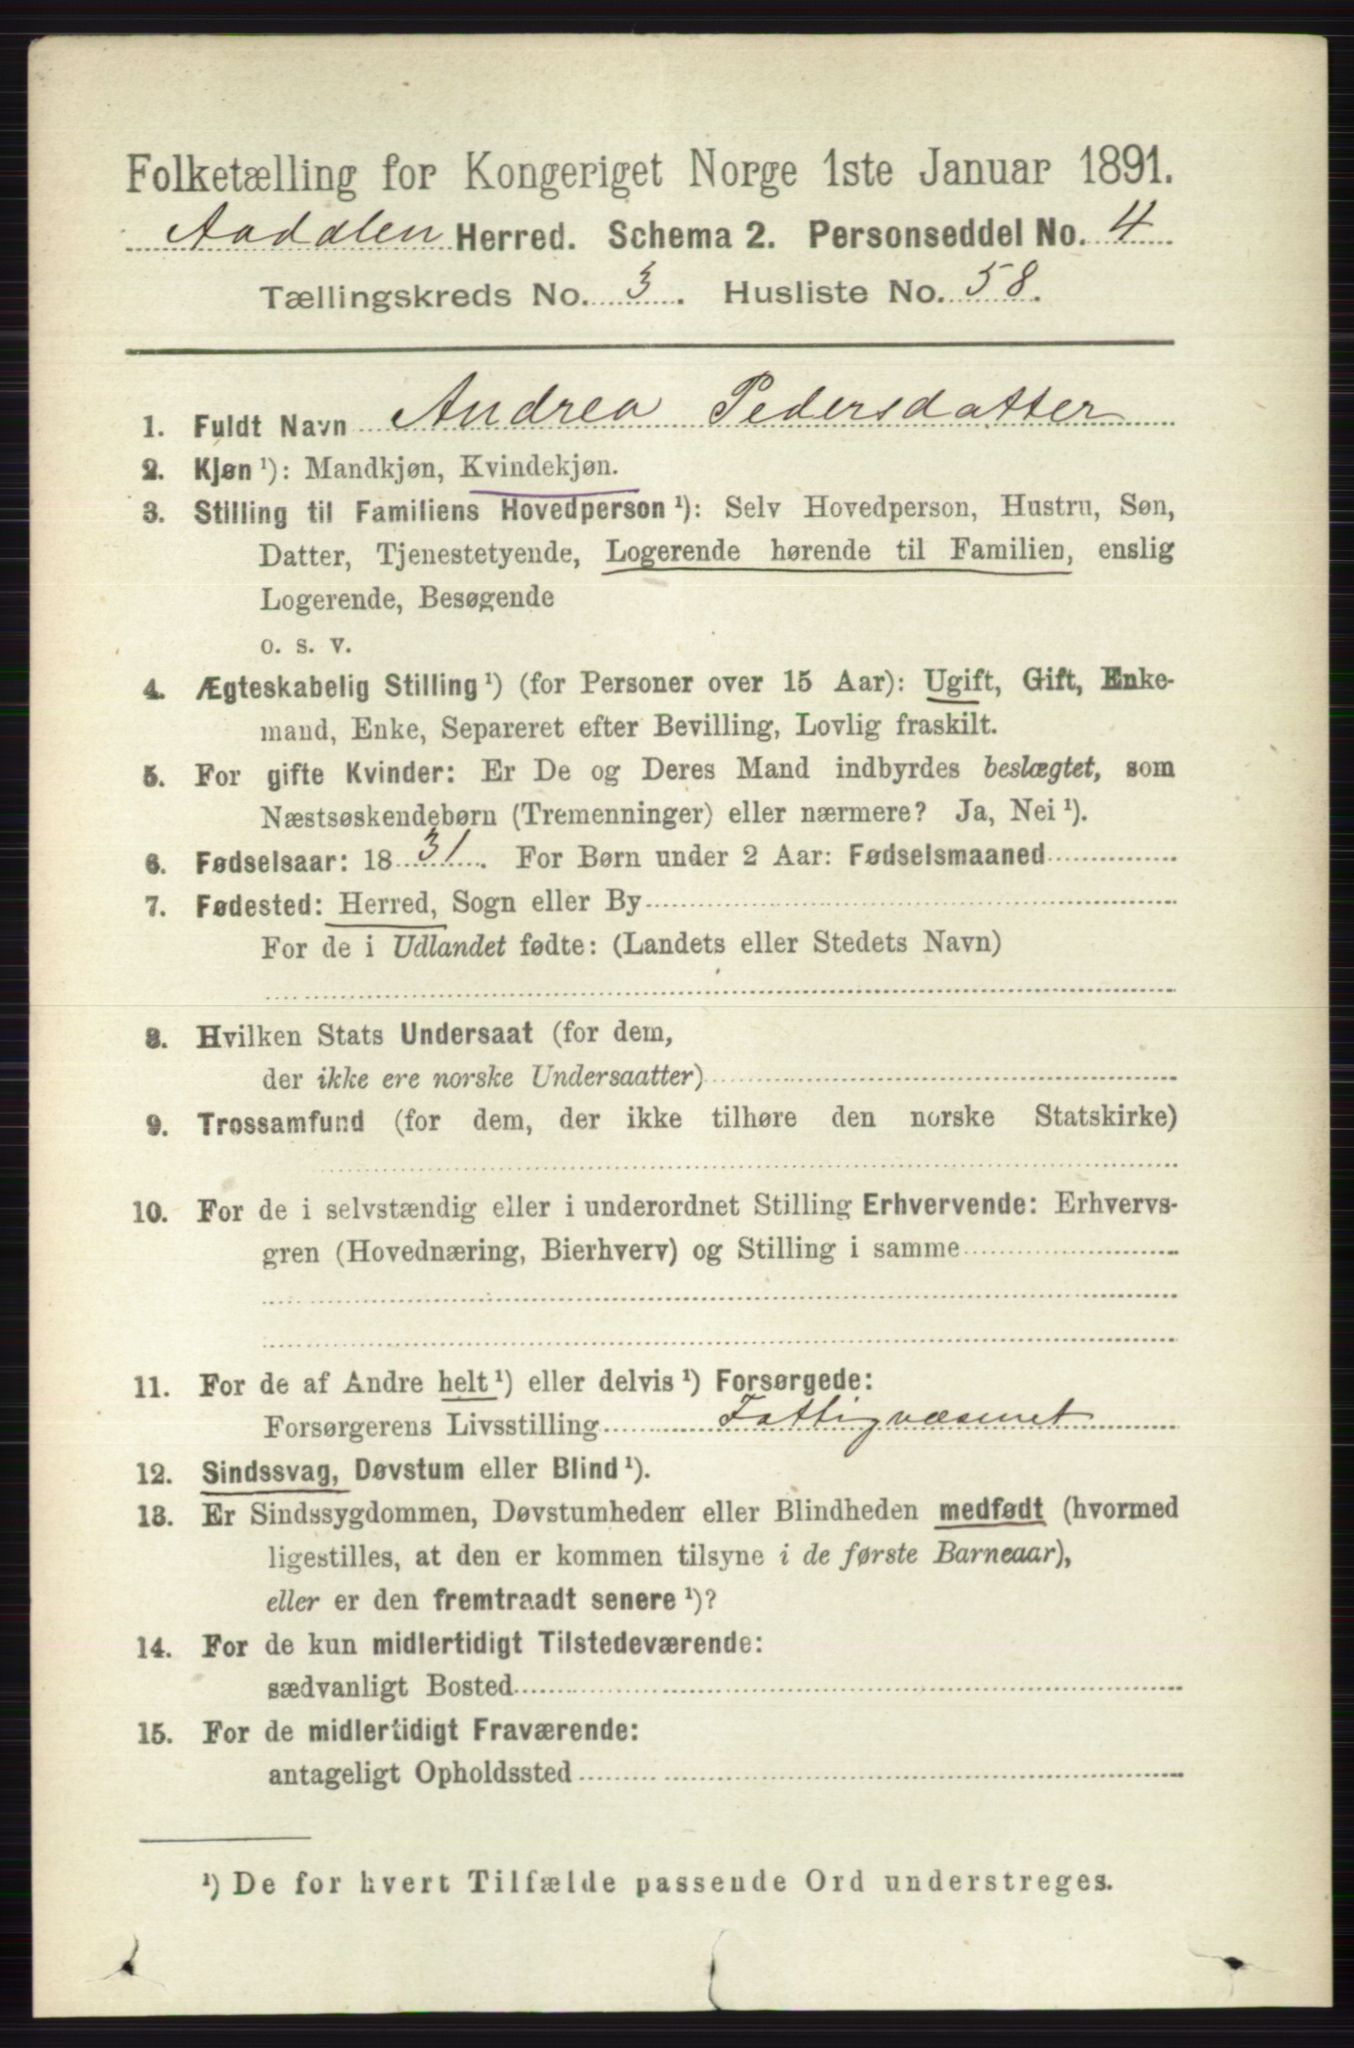 Folketælling for Kongeriget Norge 1ste Januar 1891.
Aadalen Herred. Schema 2. Personseddel No. 4
Tællingskreds No. 3. Husliste No. 58.
1. Fuldt Navn Andrea Pedersdatter
2. Kjøn ¹): Mandkjøn, Kvindekjøn.
3. Stilling til Familiens Hovedperson ¹): Selv Hovedperson, Hustru, Søn,
Datter, Tjenestetyende, Logerende hørende til Familien, enslig
Logerende, Besøgende
o. s. v.
4. Ægteskabelig Stilling ¹) (for Personer over 15 Aar): Ugift, Gift, Enke-
mand, Enke, Separeret efter Bevilling, Lovlig fraskilt.
5. For gifte Kvinder: Er De og Deres Mand indbyrdes beslægtet, som
Næstsøskendebørn (Tremenninger) eller nærmere? Ja, Nei ¹).
6. Fødselsaar: 1831. For Børn under 2 Aar: Fødselsmaaned
7. Fødested: Herred, Sogn eller By
For de i Udlandet fødte: (Landets eller Stedets Navn)
8. Hvilken Stats Undersaat (for dem,
der ikke ere norske Undersaatter)
9. Trossamfund (for dem, der ikke tilhøre den norske Statskirke)
10. For de i selvstændig eller i underordnet Stilling Erhvervende: Erhvervs-
gren (Hovednæring, Bierhverv) og Stilling i samme
11. For de af Andre helt ¹) eller delvis ¹) Forsørgede:
Forsørgerens Livsstilling Fattigvæsenet
12. Sindssvag, Døvstum eller Blind ¹).
13. Er Sindssygdommen, Døvstumheden eller Blindheden medfødt (hvormed
ligestilles, at den er kommen tilsyne i de første Barneaar),
eller er den fremtraadt senere ¹)?
14. For de kun midlertidigt Tilstedeværende:
sædvanligt Bosted
15. For de midlertidigt Fraværende:
antageligt Opholdssted
¹) De for hvert Tilfælde passende Ord understreges.